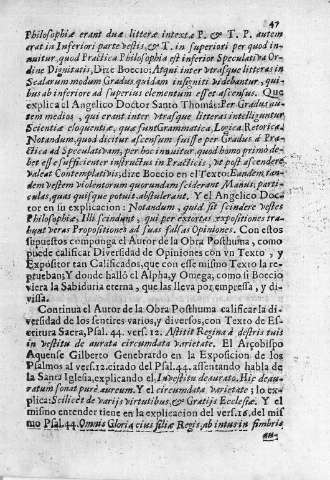 47
Philosophiæ erant duæ litteræ intextæ P. & T. P. autem
erat in Inferiori parte vestis, & T. in superiori per quod in-
nuitur, quod Practica Philosophia est inferior Speculativa Or-
dine Dignitatis, Dize Boecio: Atqui inter vtrasque litteras in
Scalarum modum Gradus quidam insigniti videbantur, qui-
bus ab inferiore ad superius elementum esset ascensus. Que
explica el Angelico Doctor Santo Thomàs: Per Gradus au-
tem medios, qui erant inter vtrasque litteras intelliguntur
Scientiæ eloquentiæ, quæ sunt Grammatica, Logica, Retorica.
Notandum, quod dicitur ascensum fuisse per Gradus à Pra-
ctica ad Speculativam, per hoc innuitur, quod homo primò de-
bet esse sufficienter instructus in Practicis, vt post ascendere
valeat Contemplativis, dize Boecio en el Texto: Eandem tan-
dem vestem violentorum quorundam sciderant Manus, parti-
culas, quas quisque potuit, abstulerant. Y el Angelico Doc-
tor en su explicacion: Notandum, quod, isti scindere vestes
Philosophiæ, Illi scindunt, qui per extortas expositiones tra-
hunt veras Propositiones ad suas falsas Opiniones. Con estos
supuestos componga el Autor de la Obra Posthuma, como
puede calificar Diversidad de Opiniones con vn Texto, y
Expositor tan Calificados, que con esse mismo Texto la re-
prueban; Y donde hallò el Alpha, y Omega, como si Boecio
viera la Sabiduria eterna, que las lleva por empressa, y di-
vissa.
Continua el Autor de la Obra Posthuma calificar la di-
versidad de los sentires varios, y diversos, con Texto de Es-
critura Sacra, Psal. 44. vers. 12. Astitit Regina à dextris tuis
in vestitu de aurato circumdata varietate. El Arçobispo
Aquense Gilberto Genebrardo en la Exposicion de los
Psalmos al vers. 12. citado del Psal. 44. assentando habla de
la Santa Iglesia, explicando el, In vestitu de aurato. Hip de au-
ratum sonat purè aureum. Y el circumdata varietate; lo ex-
plica: Scilicèt de varijs virtutibus, & Gratijs Ecclesiæ. Y el
mismo entender tiene en la explicacion del vers. 16. del mis-
mo Psal. 44. Omnis Gloria eius filiæ Regis, ab intus in fimbrijs
au-